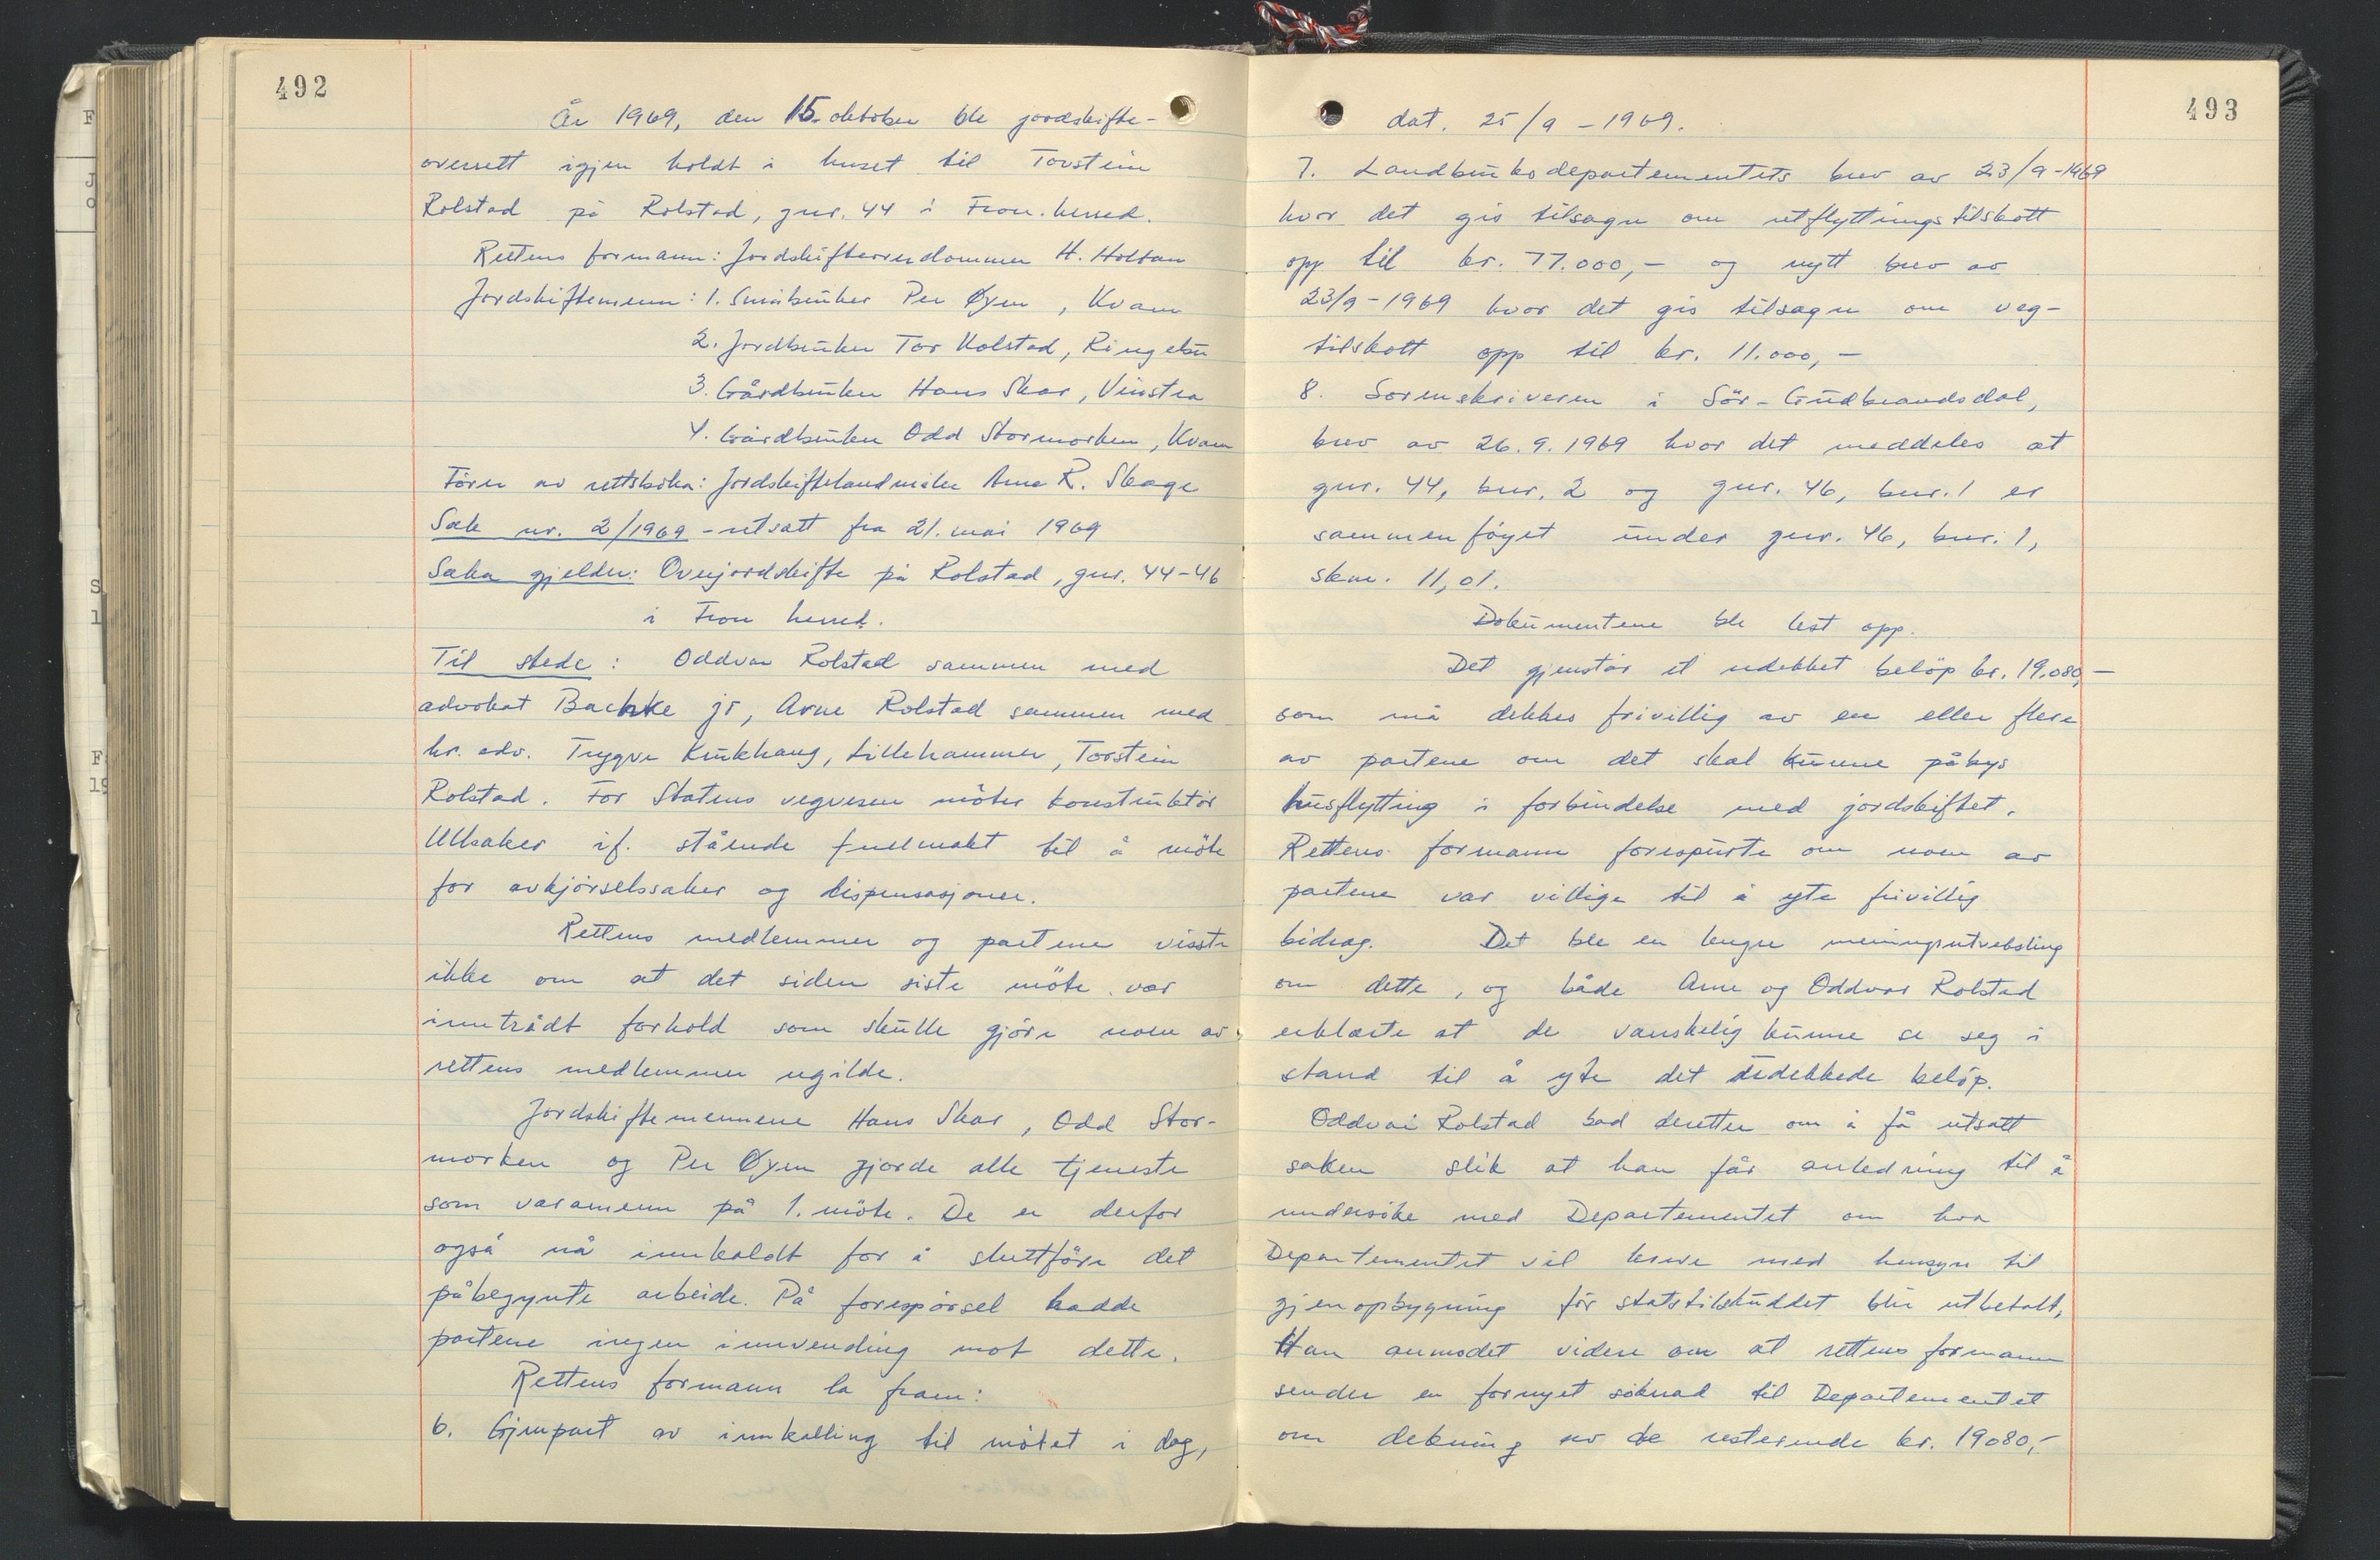 492
År 1969, den 15. oktober ble jordskifte-
overrett igjen holdt i huset til Torstein
Rolstad på Rolstad, gnr. 44 i Fron herred.
Rettens formann: Jordskifteoverdommer H. Holtan
Jordskiftemenn: 1. Småbruker Per Øyen, Kvam
2. Jordbruker Tor Kolstad, Ringebu
3. Gårdbruker Hans Skar, Vinstra
4. Gårdbruker Odd Stormorken, Kvam
Förer av rettsboka: Jordskiftelandmåler Arne R. Skage
Sak nr. 2/1969 - utsatt fra 21. mai 1969
Saka gjelder: Overjordskifte på Rolstad, gnr. 44-46
i Fron herred.
Til stede: Oddvar Rolstad sammen med
advokat Bachke jr, Arne Rolstad sammen med
hr. adv. Trygve Krukhaug, Lillehammer, Torstein
Rolstad. For Statens vegvesen möter konstruktör
Ullsaker if. stående fullmakt til å möte
for avkjörselssaker og dispensasjoner.
Rettens medlemmer og partene visste
ikke om at det siden siste möte var
inntrådt forhold som skulle gjöre noen av
rettens medlemmer ugilde.
Jordskiftemennene Hans Skar, Odd Stor-
morken og Per Øyen gjorde alle tjeneste
som varamenn på 1. möte. De er derfor
også nå innkaldt for å sluttföre det
påbegynte arbeide. På forespörsel hadde
partene ingen innvending mot dette.
Rettens formann la fram:
6. Gjenpart av innkalling til mötet i dag,
493
dat. 25/9 - 1969.
7. Landbruksdepartementets brev av 23/9-1969
hvor det gis tilsagn om utflyttingstilskott
opp til kr. 77.000,- og nytt brev av
23/9-1969 hvor det gis tilsagn om veg-
tilskott opp til kr. 11.000,-
8. Sorenskriveren i Sör-Gudbrandsdal,
brev av 26.9.1969 hvor det meddeles at
gnr. 44, bnr. 2 og gnr. 46, bnr. 1 er
sammenföyet under gnr. 46, bnr. 1,
skm. 11,01.
Dokumentene ble lest opp.
Det gjenstår et udekket belöp kr. 19.080,-
som må dekkes frivillig av en eller flere
av partene om det skal kunne påbys
husflytting i forbindelse med jordskiftet.
Rettens formann forespurte om noen av
partene var villige til å yte frivillig
bidrag. Det ble en lengre meningsutveksling
om dette, og både Arne og Oddvar Rolstad
erklærte at de vanskelig kunne se seg i
stand til å yte det udekkede belöp.
Oddvar Rolstad bad deretter om å få utsatt
saken slik at han får anledning til å
undersöke med Departementet om hva
Departementet vil kreve med hensyn til
gjenopbygning för statstilskuddet blir utbetalt,
Han anmodet videre om at rettens formann
sender en fornyet söknad til Departementet
om dekning av de resterende kr. 19080,-